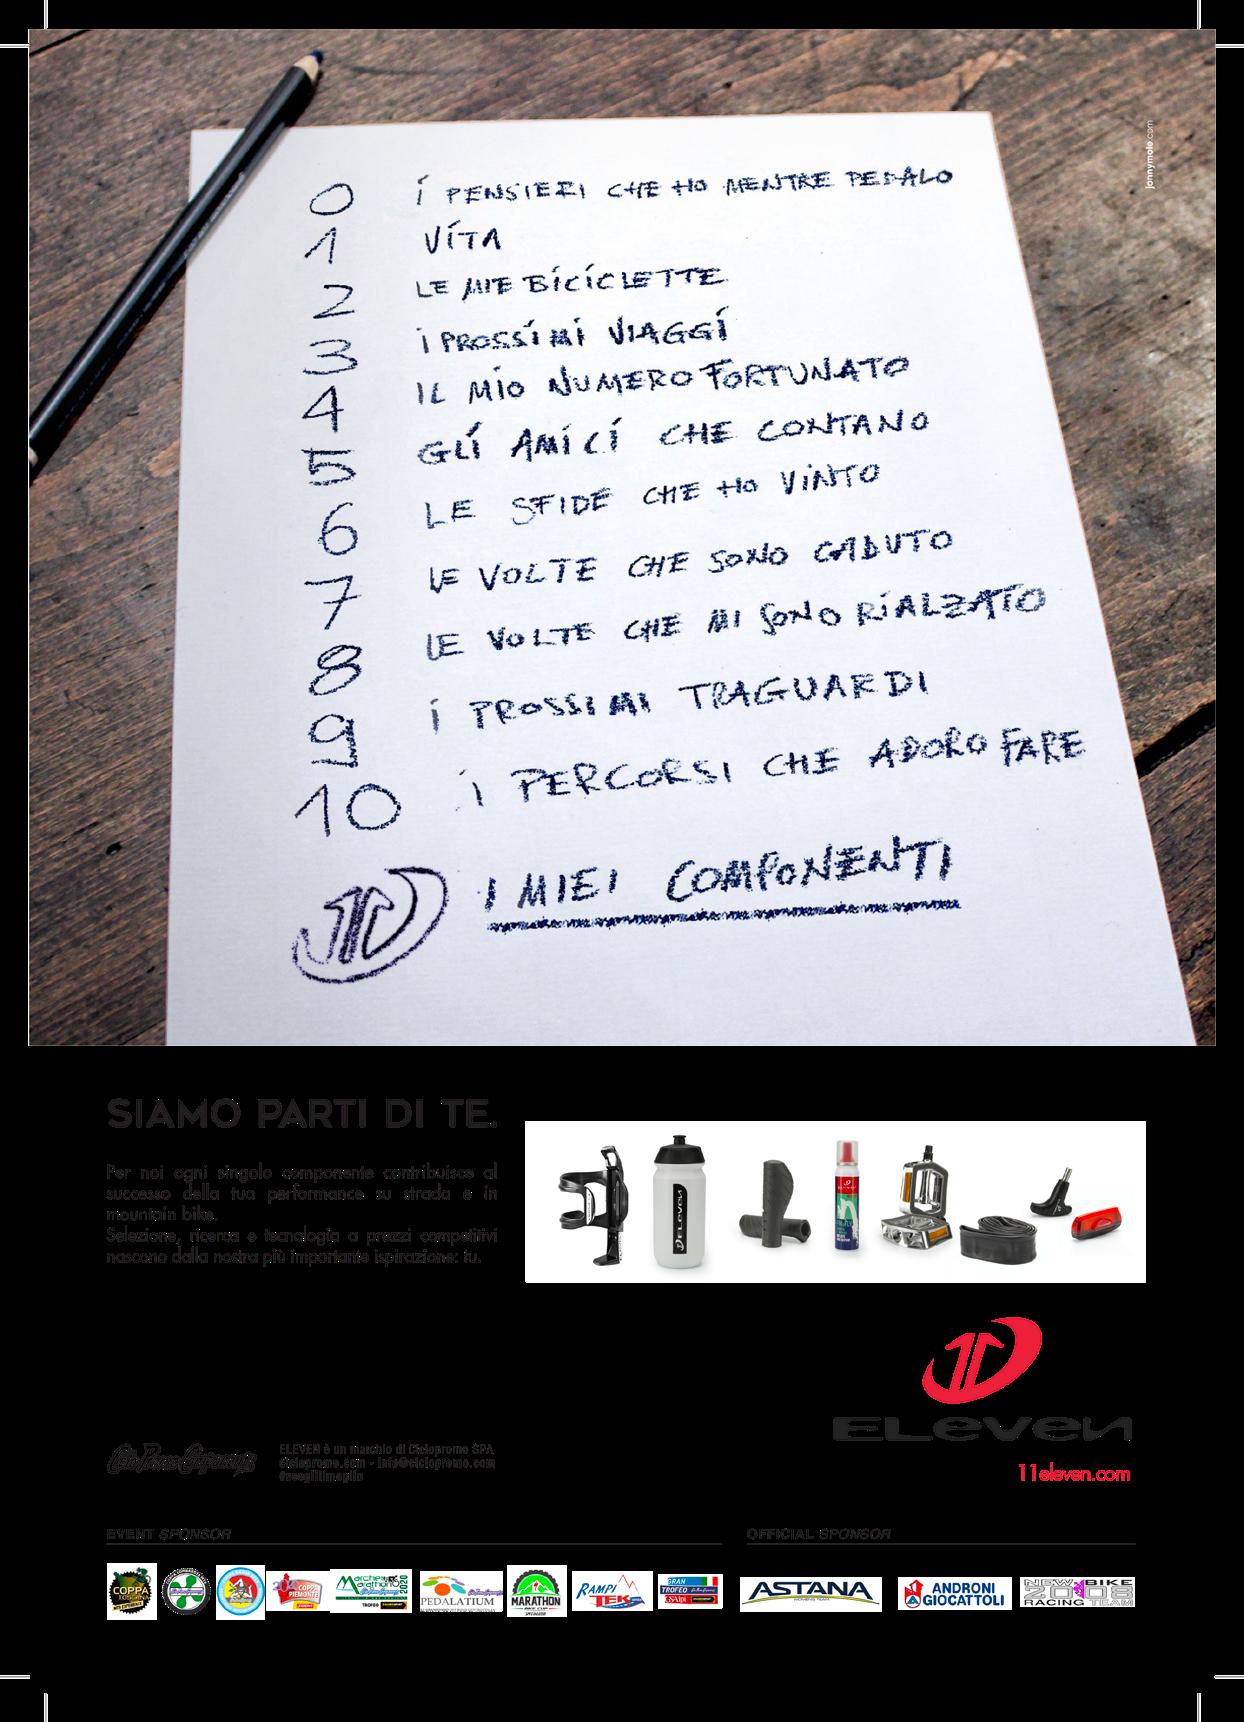 jonnymole.com
0 i PENSIERI CHE HO MENTRE PEDALO
1 VITA
2 LE MIE BICICLETTE
3 i PROSSIMI VIAGGI
4 IL MIO NUMERO FORTUNATO
5 GLI AMICI CHE CONTANO
6 LE SFIDE CHE HO VINTO
7 LE VOLTE CHE SONO CADUTO
8 LE VOLTE CHE MI SONO RIALZATO
9 i PROSSIMI TRAGUARDI
10 i PERCORSI CHE ADORO FARE
I MIEI COMPONENTI
SIAMO PARTI DI TE.
Per noi ogni singolo componente contribuisce al
successo della tua performance su strada e in
mountain bike.
Selezione, ricerca e tecnologia a prezzi competitivi
nascono dalla nostra più importante ispirazione: tu.
ELEVEN
ELEVEN
11eleven.com
ELEVEN è un marchio di Ciclopromo SPA
ciclopromo.com - info@ciclopromo.com
#scegliilmeglio
EVENT SPONSOR
OFFICIAL SPONSOR
COPPA
TOSCANA
COPPA
PIEMONTE
Marche
Marathon
2020
TROFEO
PEDALATIUM
MARATHON
BIKE CUP
SPECIALIZED
RAMPI
TEK
GRAN
TROFEO
GSAlpi
ASTANA
WOMENS TEAM
ANDRONI
GIOCATTOLI
NEW BIKE
2008
RACING TEAM